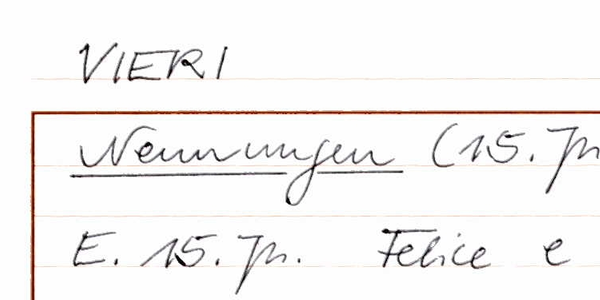 VIERI
Nennungen (15. Jh
E. 15. Jh. Felice e